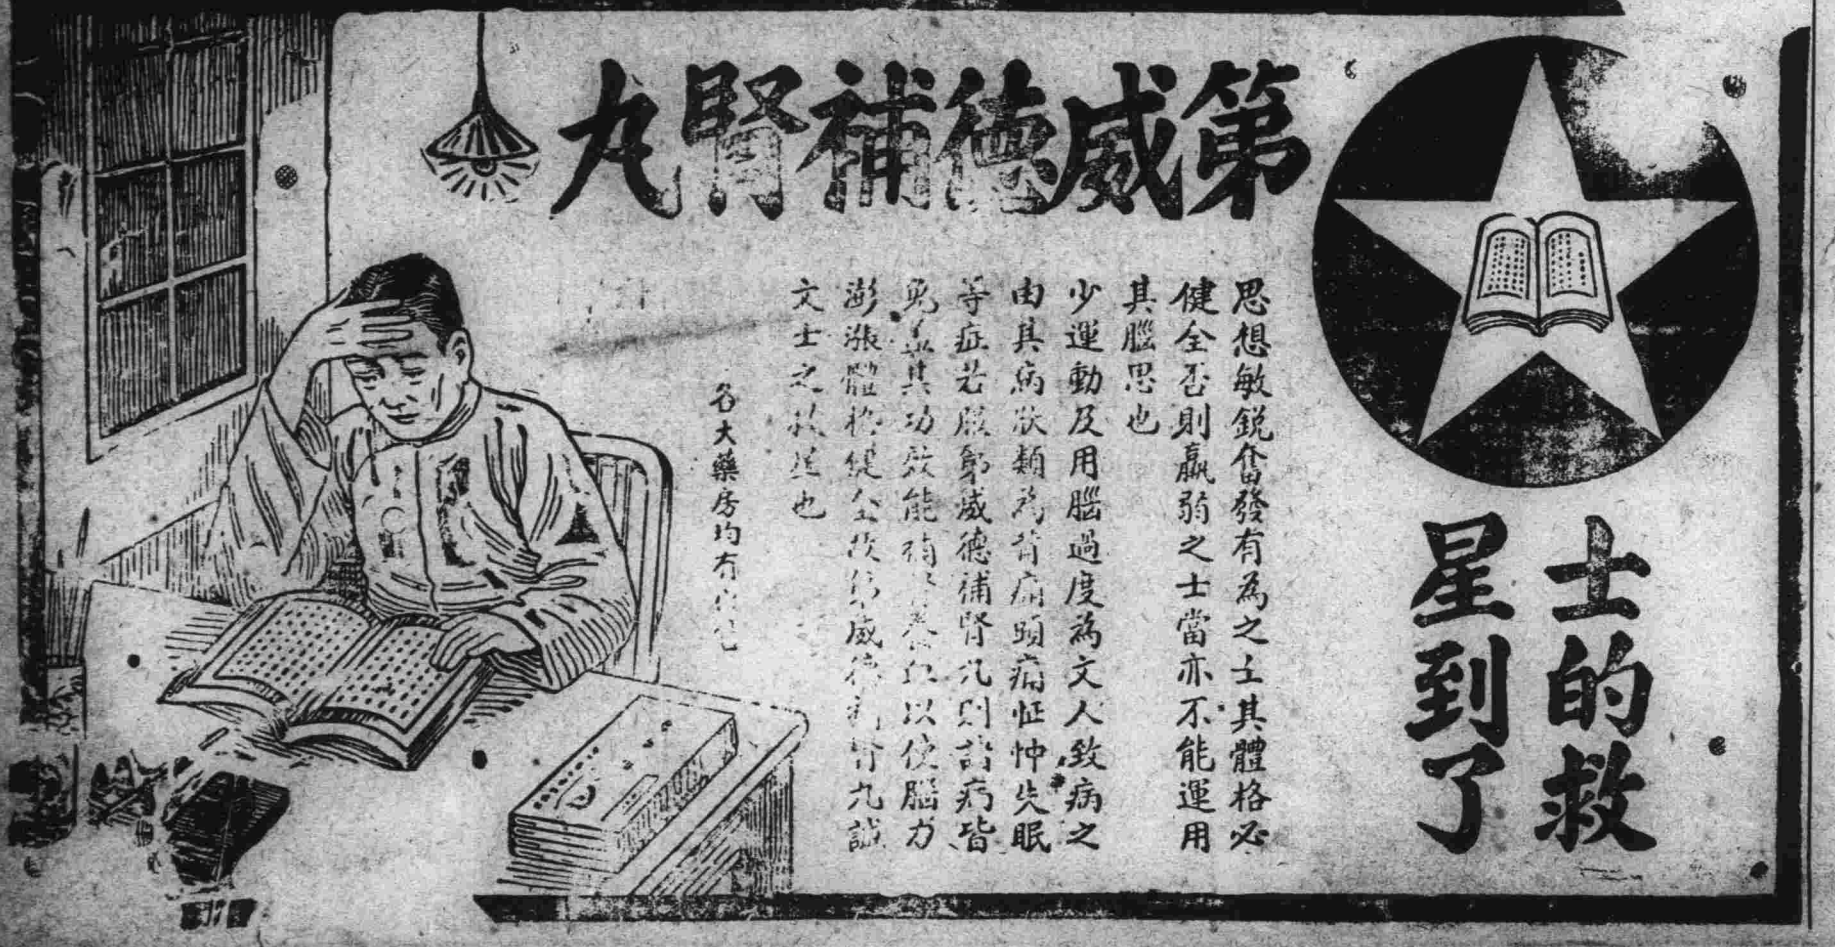 第威德補腎丸
士的救
星到了
思想敏銳奮發有為之士其體格必
健全否則羸弱之士當亦不能運用
其腦思也
少運動及用腦過度為文人致病之
由其病狀類為背痛頭痛怔忡失眠
等症若服第威德補腎丸則諸病皆
免 其功效能補 養血以使腦力
澎漲體格健全故第威德補腎丸誠
文士之救星也
各大藥房均有